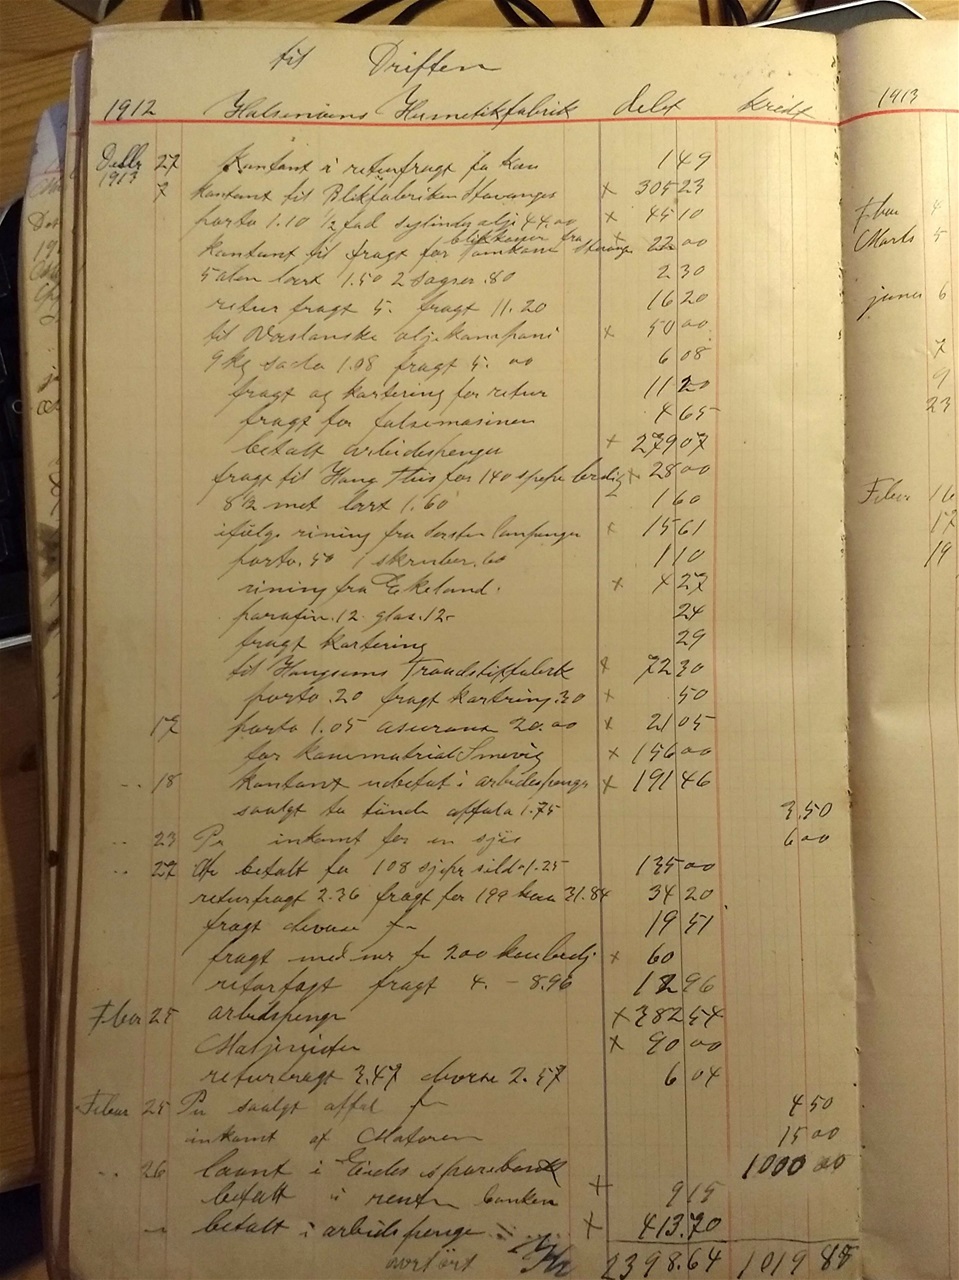 til Driften
1912 Halsenøens Hermetikfabrik debt kredt
Desbr 27 kontant i returfragt fo kan 1 49
1913
7 kontant til Blikfabriken Stavanger × 305 23
porto 1.10 1/2 fad sylinderolje 44.00 × 45 10
blikkasser fra
kontant til fragt for tomkane Stavanger × 22 00
5 alen lært 1.50 2 .80 2 30
retur fragt 5. fragt 11.20 16 20
til Vestlanske oljekompani × 50 00
9 kg soda 1.08 fragt 5.00 6 08
fragt og kartering for retur 11 20
fragt for falsemasinen 4 65
betalt arbeidspenger × 279 07
fragt til Hans for 140 × 28 00
8 1/2 met lært 1.60 1 60
ifølge rining fra × 15 61
porto .50 1 skruber .60 1 10
rining fra Ekeland. × 4 27
parafin .12. glas .12- 24
fragt kartering 29
til Haugesuns Traadstiftfabrik × 72 30
porto .20 fragt kartring .30 × 50
17 porto 1.05 asuranse 20.00 × 21 05
for kassematrial Smevig × 156 00
.. 18 kontant udbetalt i arbeidspenger × 191 46
saalgt to tønde affald 1.75 3.50
.. 23 Pr inkomt for en 6 00
.. 27 betalt for 108 sild à 1.25 135 00
returfragt 2.36 fragt for 199 kasser 31.84 34 20
fragt diverse 19 51
fragt med for 200 × 60
returfagt fragt 4. - 8.96 12 96
Febuar 25 arbidspenge × 382 54
× 90 00
returfragt 3.47 diverse 2.57 6 04
Febuar 25 Pr saalgt affal 4 50
inkomt af Motoren 15 00
.. 26 laant i Eides sparebank 1000 00
betalt i renter banken × 9 15
betalt i arbidspenge × 413.20
overført 2398.64 1019 85
1913
Febuar 4
Marts 5
junuar 6
7
9
23
Febuar 16
17
19